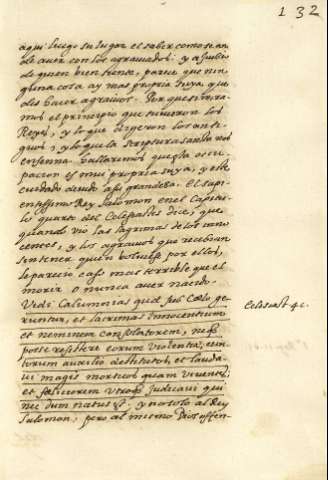 132
aqui luego su lugar el saber como se an
de auer con los agrauiados: y a juiçio
de quien bien siente, parece que nin
guna cosa ay mas propria suya, que
des haçer agrauios. Porque si mira
mos el principio que tuuieron los
Reyes, y lo que dixeron los anti
guos, y lo que la scriptura sancta nos
ensenna hallaremos que esta ocu
pacion es mui propria suya, y este
cuidado deuido a su grandeza. El sapi
entissimo Rey Salomon en el Capitu
lo quarto del Eclesiastes diçe, que
quando vio las lagrimas de los inno
centes, y los agrauios que reciuian
sin tener quien boluiesse por ellos,
le parecio caso mas terrible que el
morir o nunca auer nacido.
Vidi Calumnias quæ sub Cœlo ge
runtur, et lacrimas Innocentium
et neminem Consolatorem, nec
posse resistere eorum violentiæ, cunc
torum auxilio destitutos, et lauda
ui magis mortuos quam viuentes,
et fœliciorem utroque Judicaui qui
nec dum natus est. y no solo al Rey
Salomon, pero al mismo Dios offen
Eclesiast. 4. c.